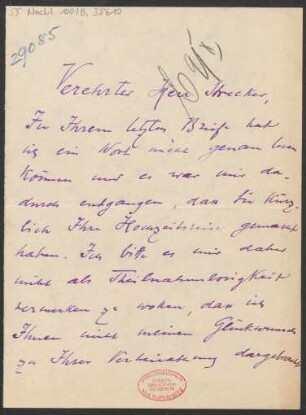 55 Nachl 100/B, 38610
29085
Verehrter Herr Strecker,
In Ihrem letzten Briefe hat
ich ein Wort nicht genau lesen
können und es war mir da-
durch entgangen, dass Sie kürz-
lich Ihre Hochzeitsreise gemacht
haben. Ich bitte es mir daher
nicht als Theilnahmlosigkeit
vermerken zu wollen, dass ich
Ihnen nicht meinen Glückwunsch
zu Ihrer Verheirathung dargebracht